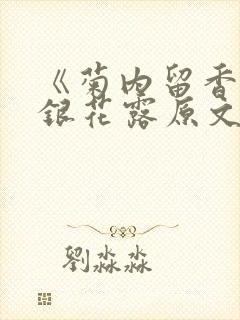 《菊内留香
銀花露原文
劉淼淼